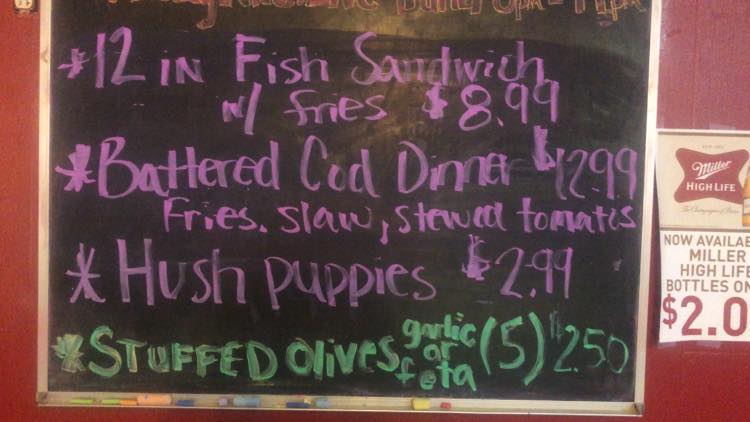 *12 IN Fish Sandwich
w/ fries $8.99
*Battered Cod Dinner $12.99
Fries. slaw, stewed tomatis
* Hush puppies $2.99
*STUFFED Olives garlic or feta (5) $2.50
Miller
HIGH LIFE
NOW AVAILAB
MILLER
HIGH LIF
BOTTLES ON
$2.0